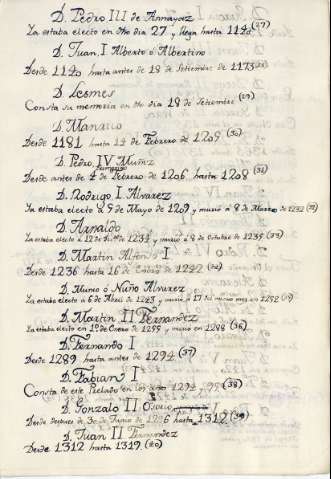 D. Pedro III de Annayaz
Ya estaba electo en dho dia 27 y llega hasta 1140. (27)
D. Juan, I Alberto ó Albertino
Desde 1140 hasta antes de 18 de Setiembre de 1173
D. Lesmes
Consta su memoria en dho dia 18 de Setiembre (29)
D. Manrico
Desde 1181 hasta 12 de Febrero de 1205 (30)
D. Pedro, IV Muñiz
Desde antes de 4 de Febrero de 1206 hasta 1208 (31)
D. Rodrigo I. Alvarez
Ya estaba electo à 9 de Mayo de 1209 y murió à 8 de Marzo de 1232 (32)
D. Arnaldo
Ya estaba electo à 12 de de 1234 y murió à 8 de Octubre de 1235 (33)
D. Martin Alfonso I
Desde 1236 hasta 16 de Enero de 1242
D. Munio ó Nuño Alvarez
Ya estaba electo à 6 de Abril de 1243 y murió à 17 del mismo mes en 1252
D. Martin II Fernandez
Ya estaba electo en 1º de Enero de 1255 y murió en 1288 (36)
D. Fernando I
Desde 1289 hasta antes de 1294 (37)
D. Fabian I
Consta de este Prelado en los años 1294 (38)
D. Gonzalo II Osorio I
Desde despues de 30 de Junio de hasta 1312 (39)
D. Juan II Fernandez
Desde 1312 hasta 1319 (40)